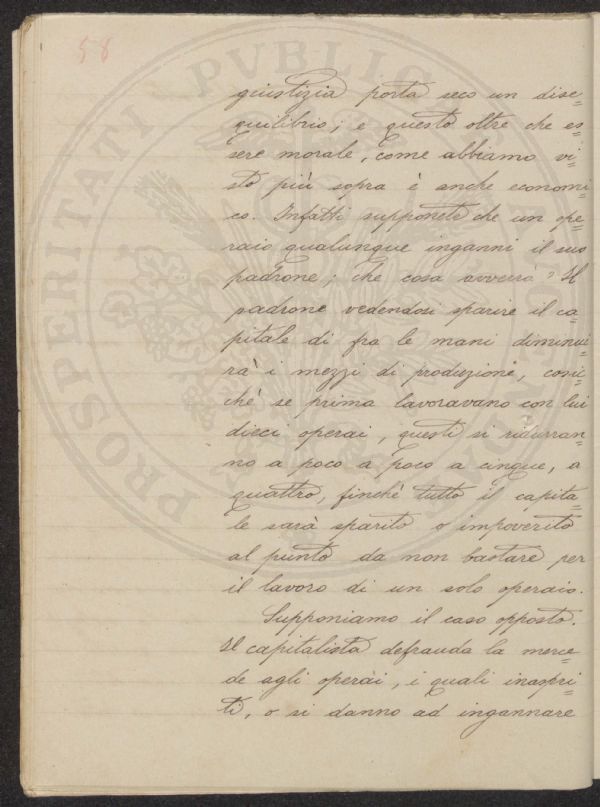 58
PROSPERITATI PVBLICAE AVGENDAE
giustizia porta seco un dise=
quilibrio; e questo oltre che es=
sere morale, come abbiamo vi=
sto più sopra è anche economi=
co. Infatti supponete che un ope=
raio qualunque inganni il suo
padrone; che cosa avverrà? Il
padrone vedendosi sparire il ca=
pitale di fra le mani diminui=
rà i mezzi di produzione, cosic=
chè se prima lavoravano con lui
dieci operai, questi si ridurran=
no a poco a poco a cinque, a
quattro, finchè tutto il capita=
le sarà sparito o impoverito
al punto da non bastare per
il lavoro di un solo operaio.
Supponiamo il caso opposto.
Il capitalista defrauda la merce=
de agli operai, i quali inaspri=
ti, o si danno ad ingannare